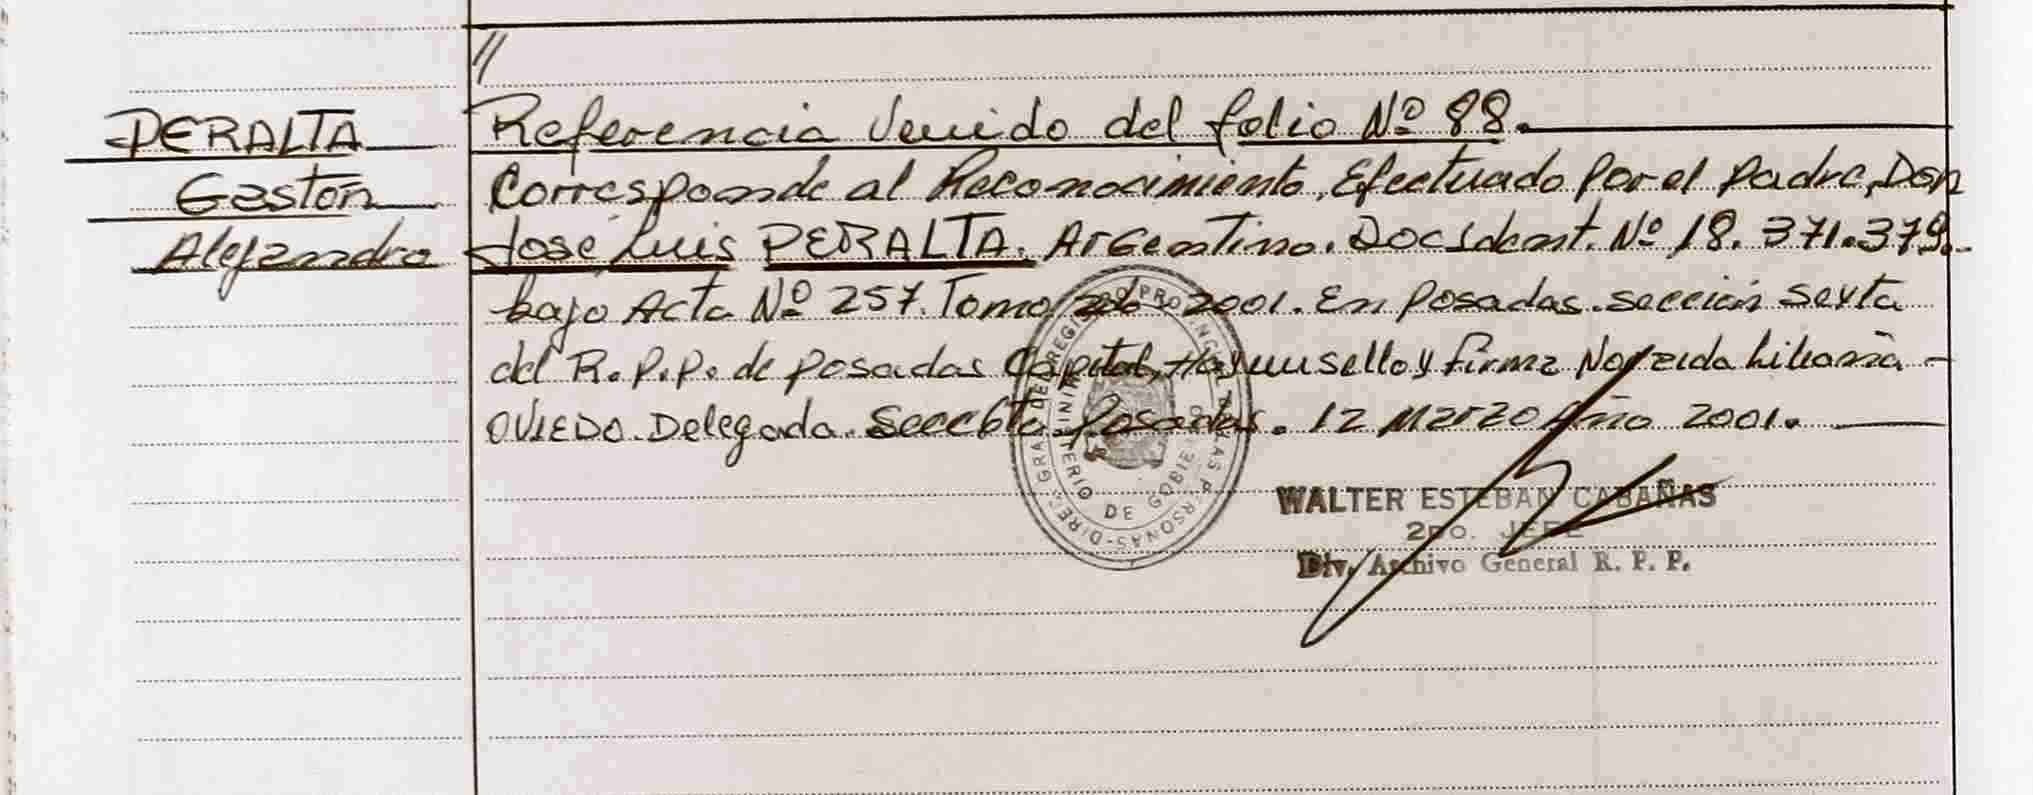 //
PERALTA
Gaston
Alejandro
Referencia Venido del folio Nº 88.
Corresponde al Reconocimiento, Efectuado Por el Padre, Don
José Luis PERALTA. Argentino. Doc Ident. Nº 18.371.379.
bajo Acta Nº 257. Tomo 2001. En Posadas. sección Sexta
del R.P.P. de Posadas Capital, Hay un sello y firma Liliana
OVIEDO. Delegada. Posadas. 12 Marzo Año 2001.
WALTER ESTEBAN CABAÑAS
2DO. JEFE
Div. Archivo General R. P. P.
MINISTERIO DE GOBIERNO